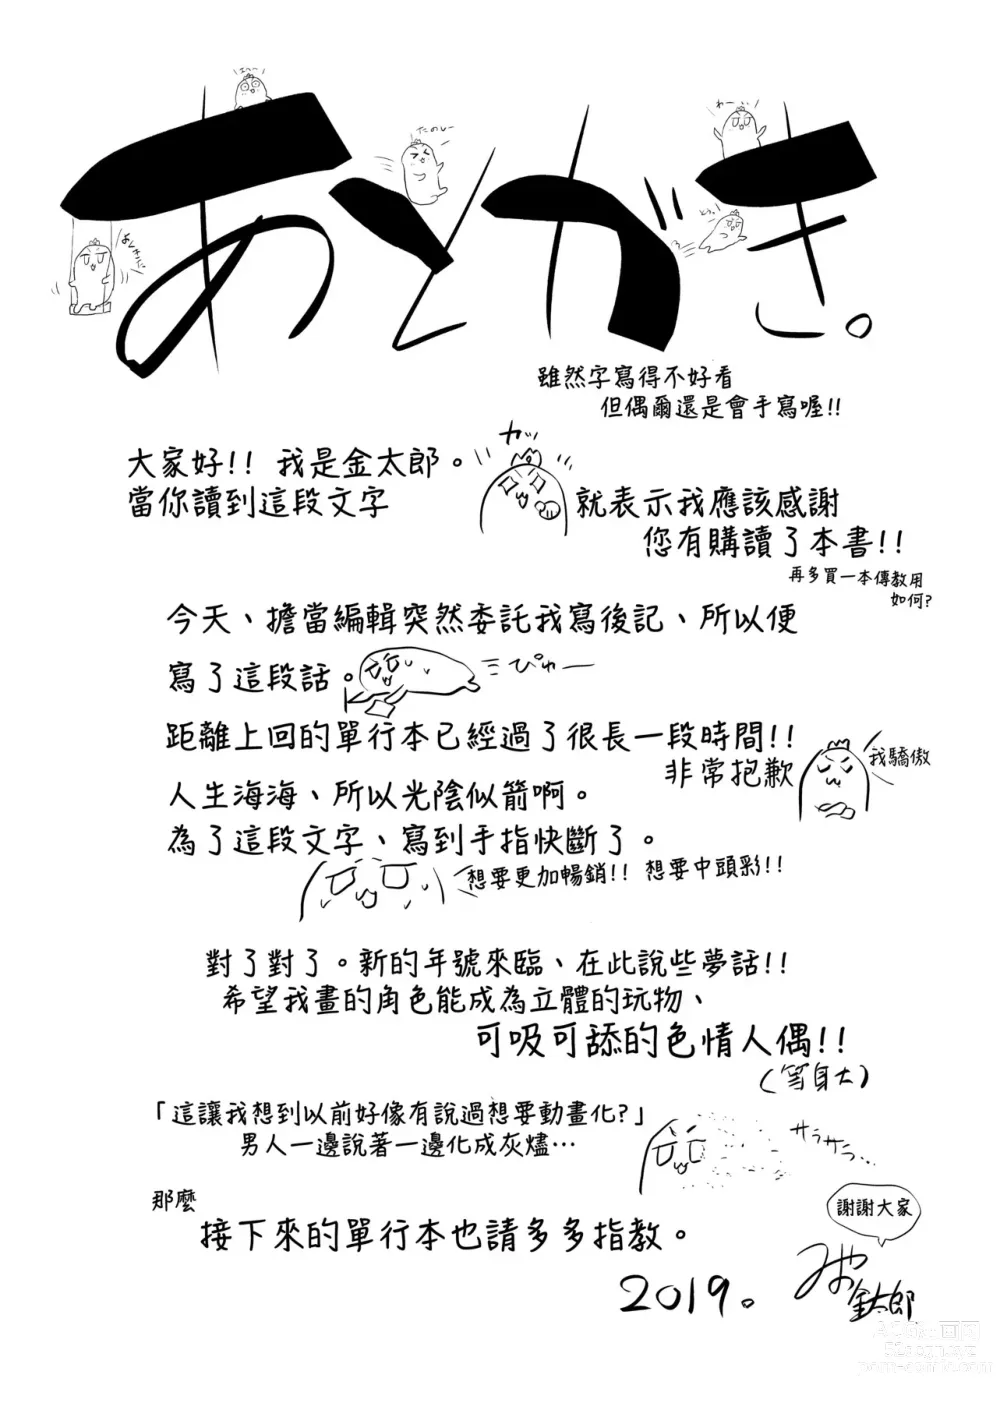 まって
たのしー
わーい
とぅ!
あとがき。
雖然字寫得不好看
但偶爾還是會手寫喔!!
大家好!! 我是金太郎。
當你讀到這段文字
カッ
就表示我應該感謝
您有購讀了本書!!
再多買一本傳教用
如何?
今天、擔當編輯突然委託我寫後記、所以便
寫了這段話。
ぴゅー
距離上回的單行本已經過了很長一段時間!!
非常抱歉
我驕傲
人生海海、所以光陰似箭啊。
為了這段文字、寫到手指快斷了。
想要更加暢銷!! 想要中頭彩!!
對了對了。新的年號來臨、在此說些夢話!!
希望我畫的角色能成為立體的玩物、
可吸可舔的色情人偶!!
(等身大)
「這讓我想到以前好像有說過想要動畫化?」
男人一邊說著一邊化成灰燼…
サラサラ…
那麼
接下來的單行本也請多多指教。
謝謝大家
2019。
金太郎